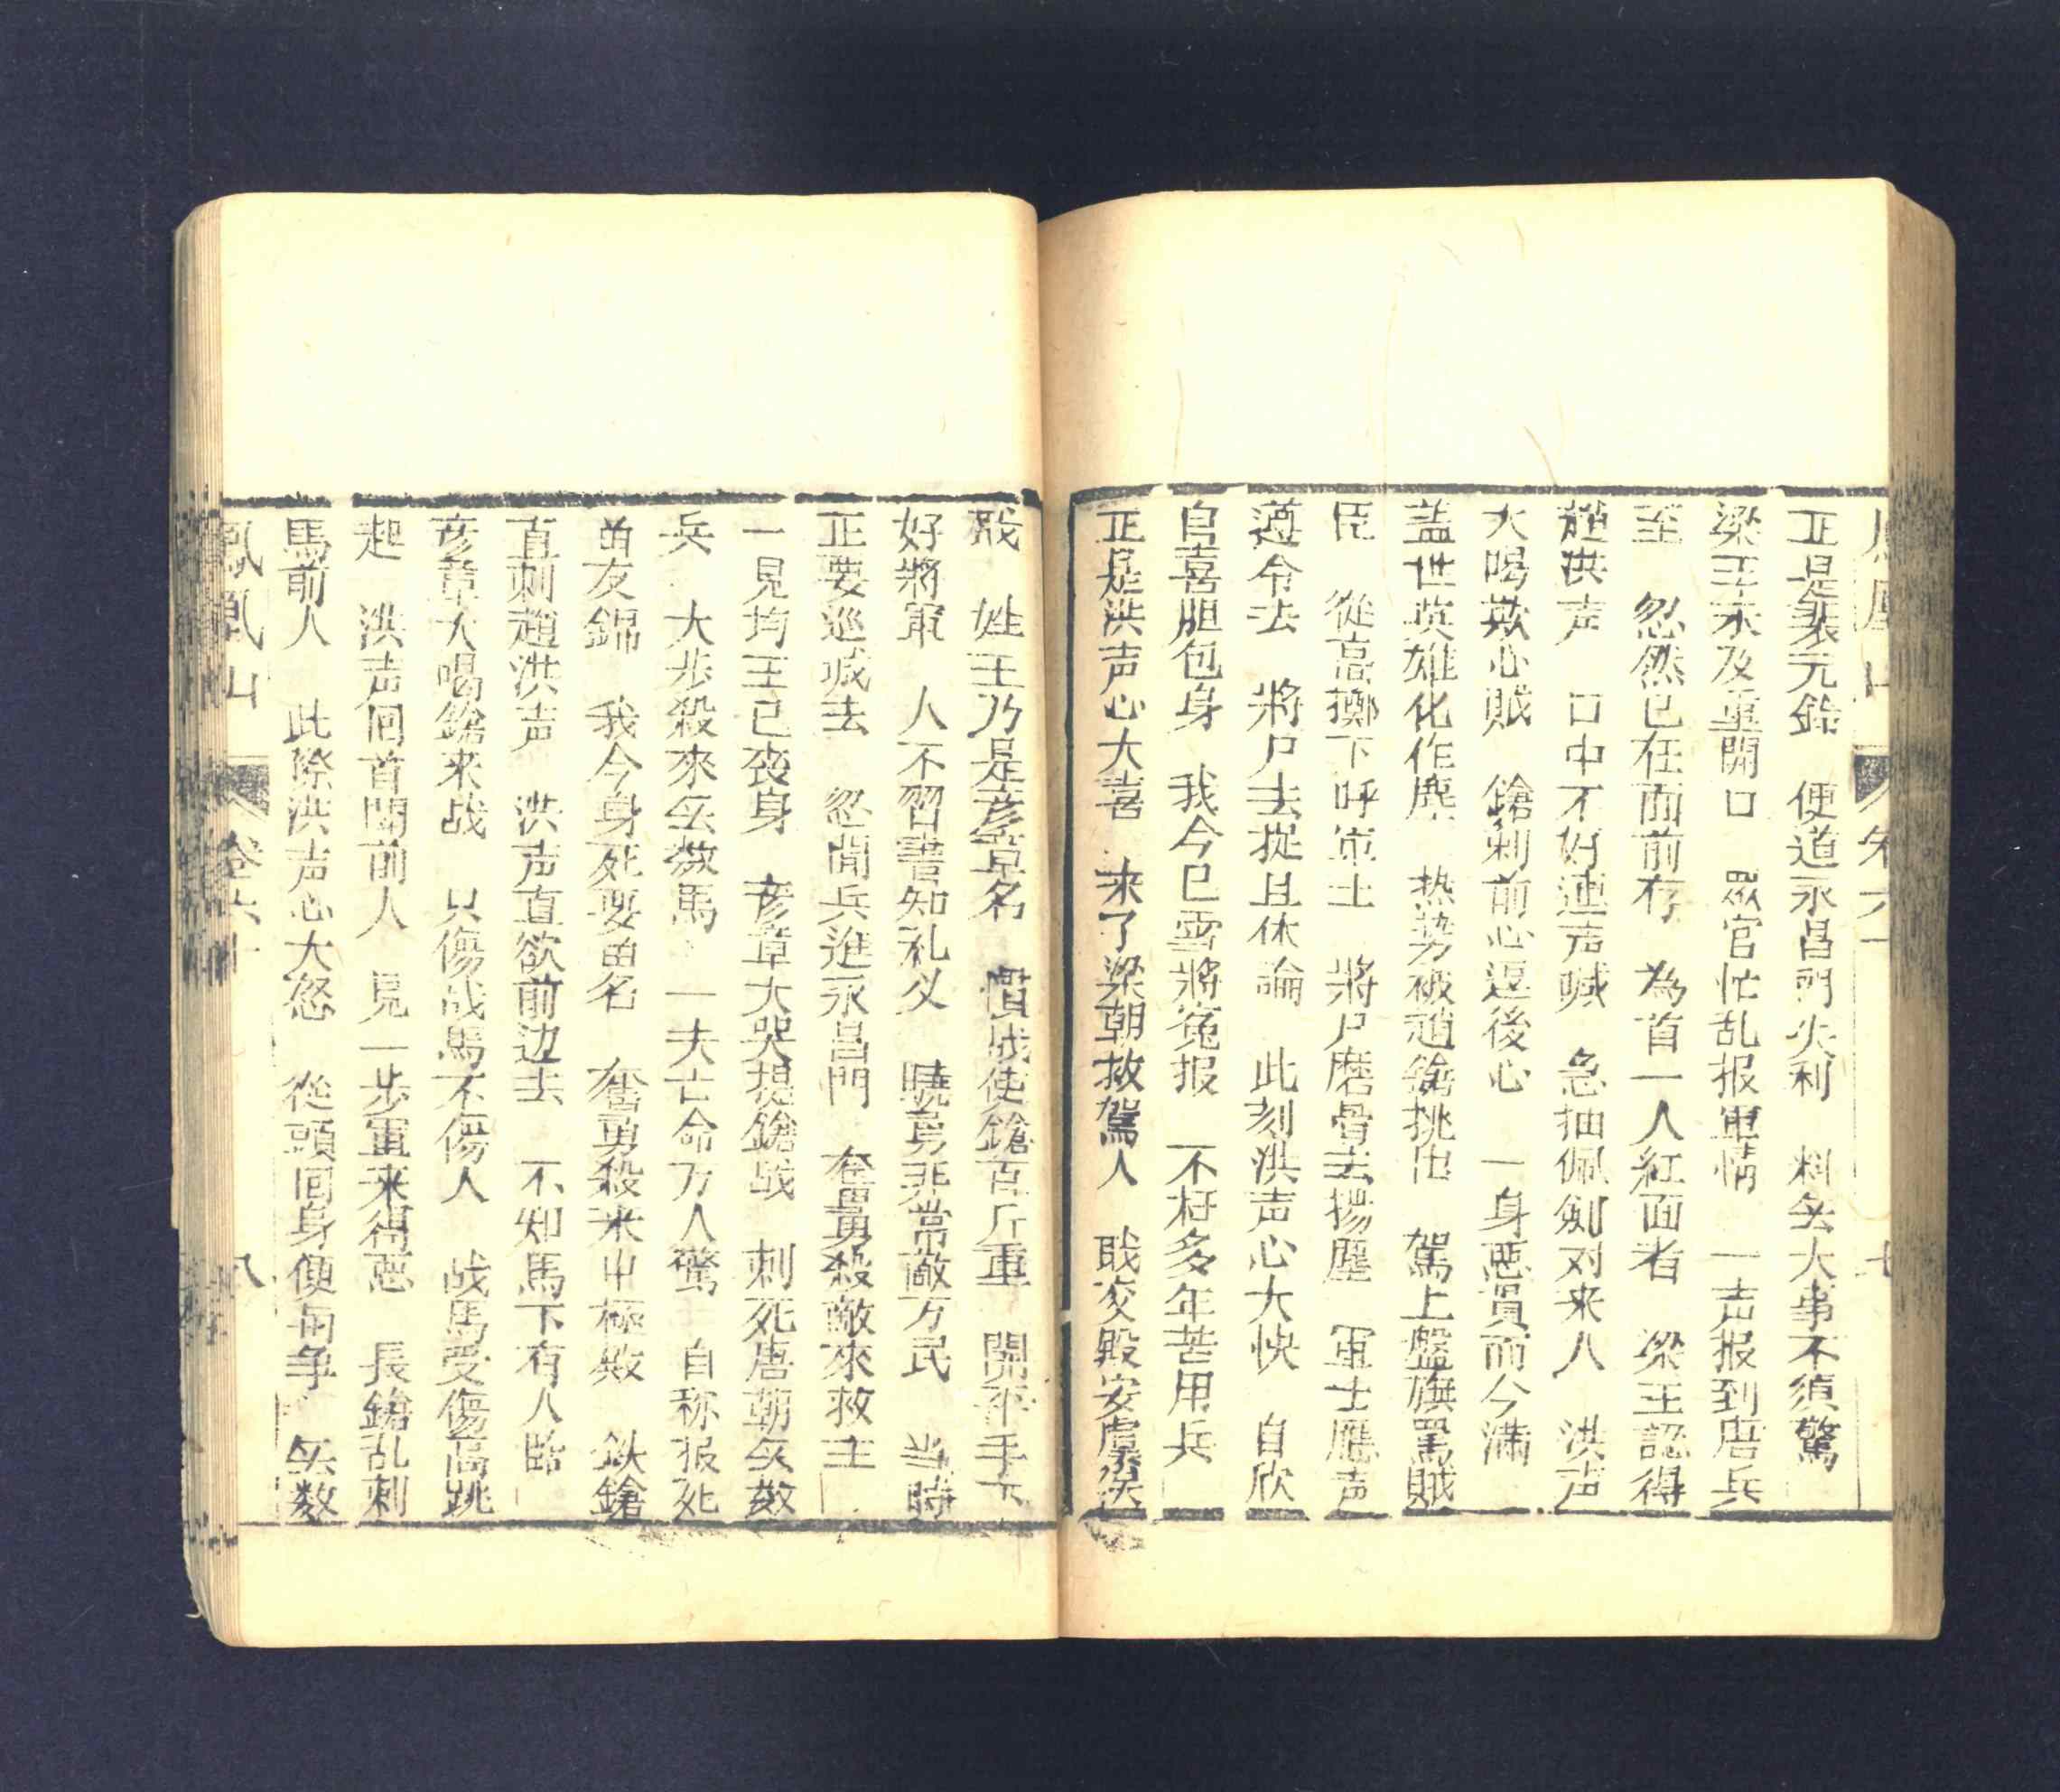 正是裴元錦　便道永昌門火利　料无大事不須驚
梁王未及重開口　眾官忙乱报軍情　一声报到唐兵
至　忽然已在面前存　為首一人紅面者　梁王認得
趙洪声　口中不好連声喊　急抽佩劍对来人　洪声
大喝欺心賊　鎗刺前心逗後心　一身惡貫而今滿
盖世英雄化作塵　热势被趙鎗挑出　駕上盤旗罵賊
臣　從高擲下呼軍士　將尸磨骨去揚塵　軍士應声
遵令去　將尸去捉且休論　此刻洪声心大快　自欣
自喜胆包身　我今已雪將冤报　不枉多年苦用兵
正是洪声心大喜　来了梁朝救駕人　戢交殿安
殿　姓王乃是彦章名　慣战使鎗百斤重　開平手下
好將軍　人不習書知礼义　曉勇非常敵万民　当時
正要巡城去　忽聞兵進永昌門　奋勇殺敵來救主
一見均王已丧身　彦章大哭提鎗战　刺死唐朝无数
兵　大步殺來无救馬　一夫亡命万人驚　自称报死
曽友錦　我今身死要留名　奮勇殺來中極殿　鉄鎗
直刺趙洪声　洪声直欲前边去　不知馬下有人臨
彦章大喝鎗来战　只傷战馬不傷人　战馬受傷高跳
起　洪声囘首問前人　見一步軍来得惡　長鎗乱刺
馬前人　此際洪声心大怒　從頭回身便向爭　无数
鳳凰山　卷六十　八